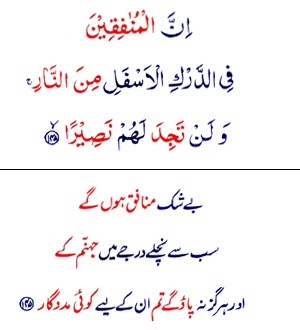 اِنَّ الْمُنٰفِقِیْنَ
فِی الدَّرْكِ الْاَسْفَلِ مِنَ النَّارِ ۚ
وَ لَنْ تَجِدَ لَهُمْ نَصِیْرًا ۙ۱۴۵
بے شک منافق ہوں گے
سب سے نچلے درجے میں جہنّم کے
اور ہرگز نہ پاؤ گے تم ان کے لیے کوئی مددگار ۱۴۵